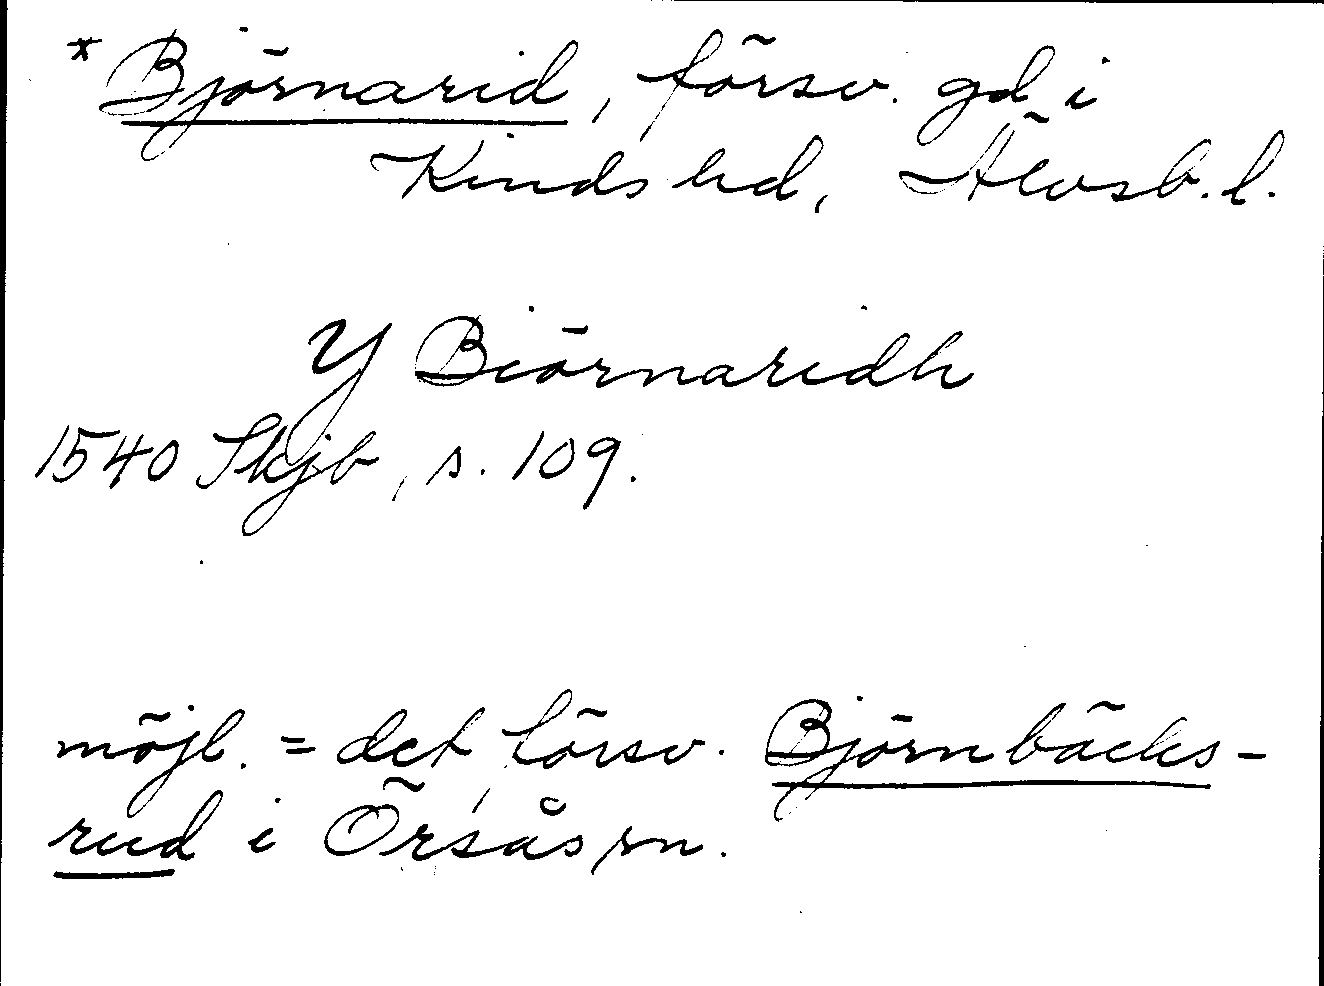 * Björnarid, försv. gd i
Kinds hd, Älvsb. l.
Y Biörnaridh
1540 Skjb, s. 109.
möjl. = det försv. Björnbäcks-
rud i Örsås sn.